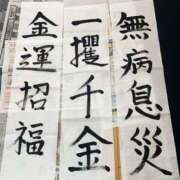 無病息災
一攫千金
金運招福